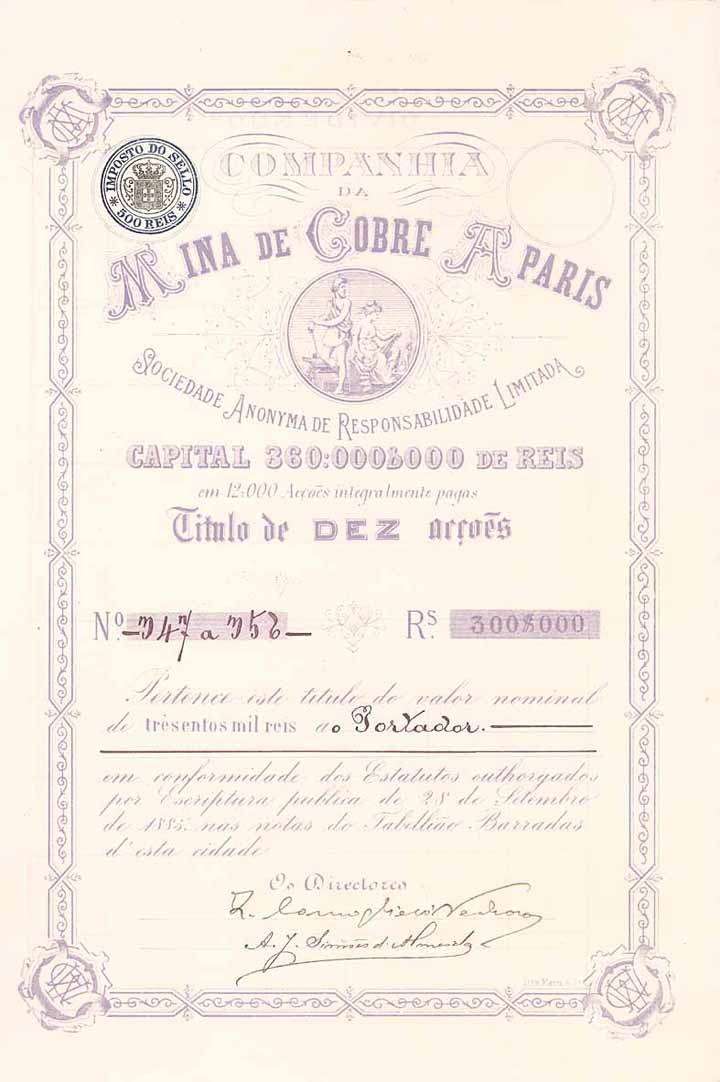 IMPOSTO DO SELLO
500 REIS
COMPANHIA
DA
MINA DE COBRE APARIS
SOCIEDADE ANONYMA DE RESPONSABILIDADE LIMITADA
CAPITAL 360:000$000 DE REIS
em 12:000 Acções integralmente pagas
Titulo de DEZ acções
Nº
RS. 300$000
Pertence este titulo do valor nominal
de trèsentos mil reis ao Portador.
em conformidade dos Estatutos outhorgados
por Escriptura publica de 28 de Setembro
de 1885. nas notas do Tabellião Barradas
d'esta cidade
Os Directores
A. J. Simões d'Almeida